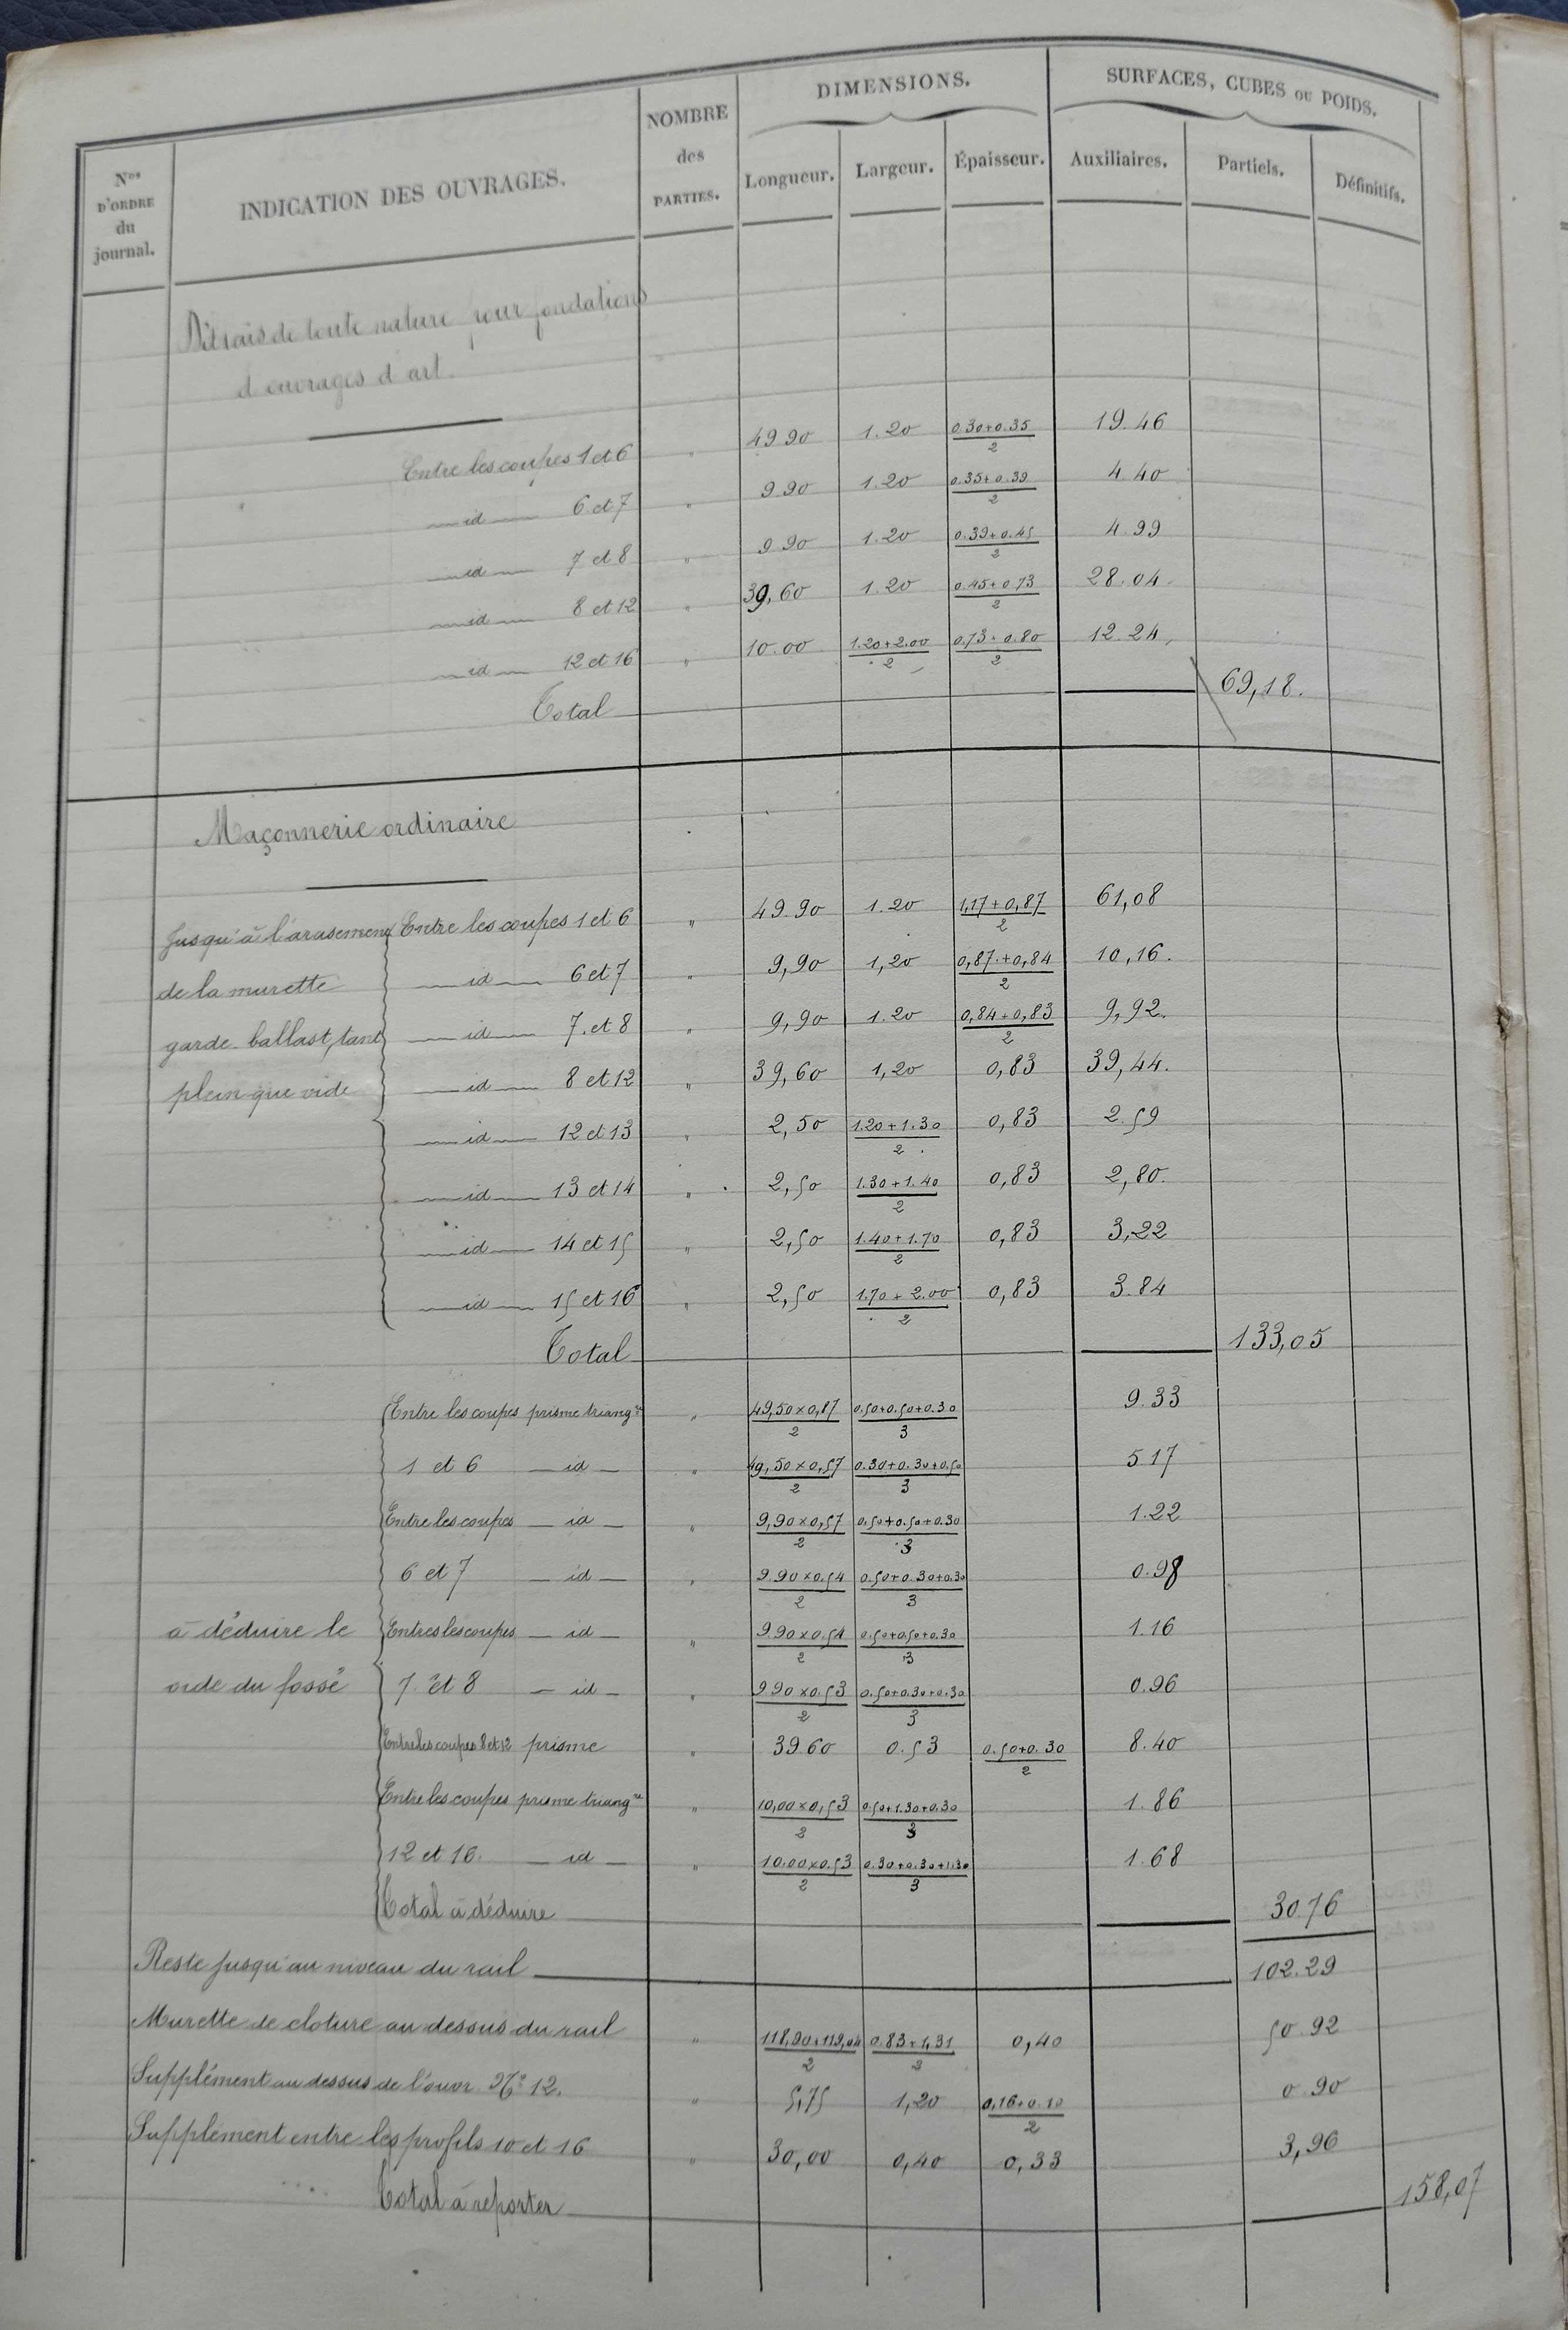 Nos D'ORDRE du journal. | INDICATION DES OUVRAGES. | NOMBRE des PARTIES. | DIMENSIONS. | SURFACES, CUBES ou POIDS.
Longueur. | Largeur. | Épaisseur. | Auxiliaires. | Partiels. | Définitifs.
de toute nature pour fondations
d'ouvrages d'art.
Entre les coupes 1 et 6 " 49.90 1.20 0.30+0.35/2 19.46
id 6 et 7 " 9.90 1.20 0.35+0.39/2 4.40
id 7 et 8 " 9.90 1.20 0.39+0.45/2 4.99
id 8 et 12 " 39,60 1.20 0.45+0.73/2 28.04.
id 12 et 16 " 10.00 1.20+2.00/2 0.73+0.80/2 12.24
Total 69,18.
Maçonnerie ordinaire
Jusqu'à l'arasement Entre les coupes 1 et 6 " 49.90 1.20 1,17+0,87/2 61,08
de la murette id 6 et 7 " 9,90 1,20 0,87+0,84/2 10,16.
garde-ballast, tant id 7 et 8 " 9,90 1.20 0,84+0,83/2 9,92.
plein que vide id 8 et 12 " 39,60 1,20 0,83 39,44.
id 12 et 13 " 2,50 1.20+1.30/2 0,83 2.59
id 13 et 14 " 2,50 1.30+1.40/2 0,83 2,80.
id 14 et 15 " 2,50 1.40+1.70/2 0,83 3,22
id 15 et 16 " 2,50 1.70+2.00/2 0,83 3.84
Total 133,05
Entre les coupes prisme triangre " 49,50×0,87/2 0.50+0.50+0.30/3 9.33
1 et 6 id " 49,50×0,57/2 0.30+0.30+0.50/3 5 17
Entre les coupes id " 9,90×0,57/2 0.50+0.50+0.30/3 1.22
6 et 7 id " 9.90×0.54/2 0.50+0.30+0.30/3 0.98
à déduire le Entres les coupes id " 9.90×0.54/2 0.50+0.50+0.30/3 1.16
vide du fossé 7 et 8 id " 9.90×0.53/2 0.50+0.30+0.30/3 0.96
Entre les coupes 8 et 12 prisme " 39.60 0.53 0.50+0.30/2 8.40
Entre les coupes prisme triangre " 10,00×0,53/2 0.50+1.30+0.30/3 1.86
12 et 16. id " 10.00×0.53/2 0.30+0.30+1.30/3 1.68
Total à déduire 30.76
Reste jusqu'au niveau du rail 102.29
Murette de cloture au dessus du rail " 118,90+119,04/2 0.83+1,31/2 0,40 50.92
Supplément au dessus de l'ouvr. No 12. " 5,75 1,20 0,16+0.10/2 0.90
Supplément entre les profils 10 et 16 " 30,00 0,40 0,33 3,96
Total à reporter 158,07